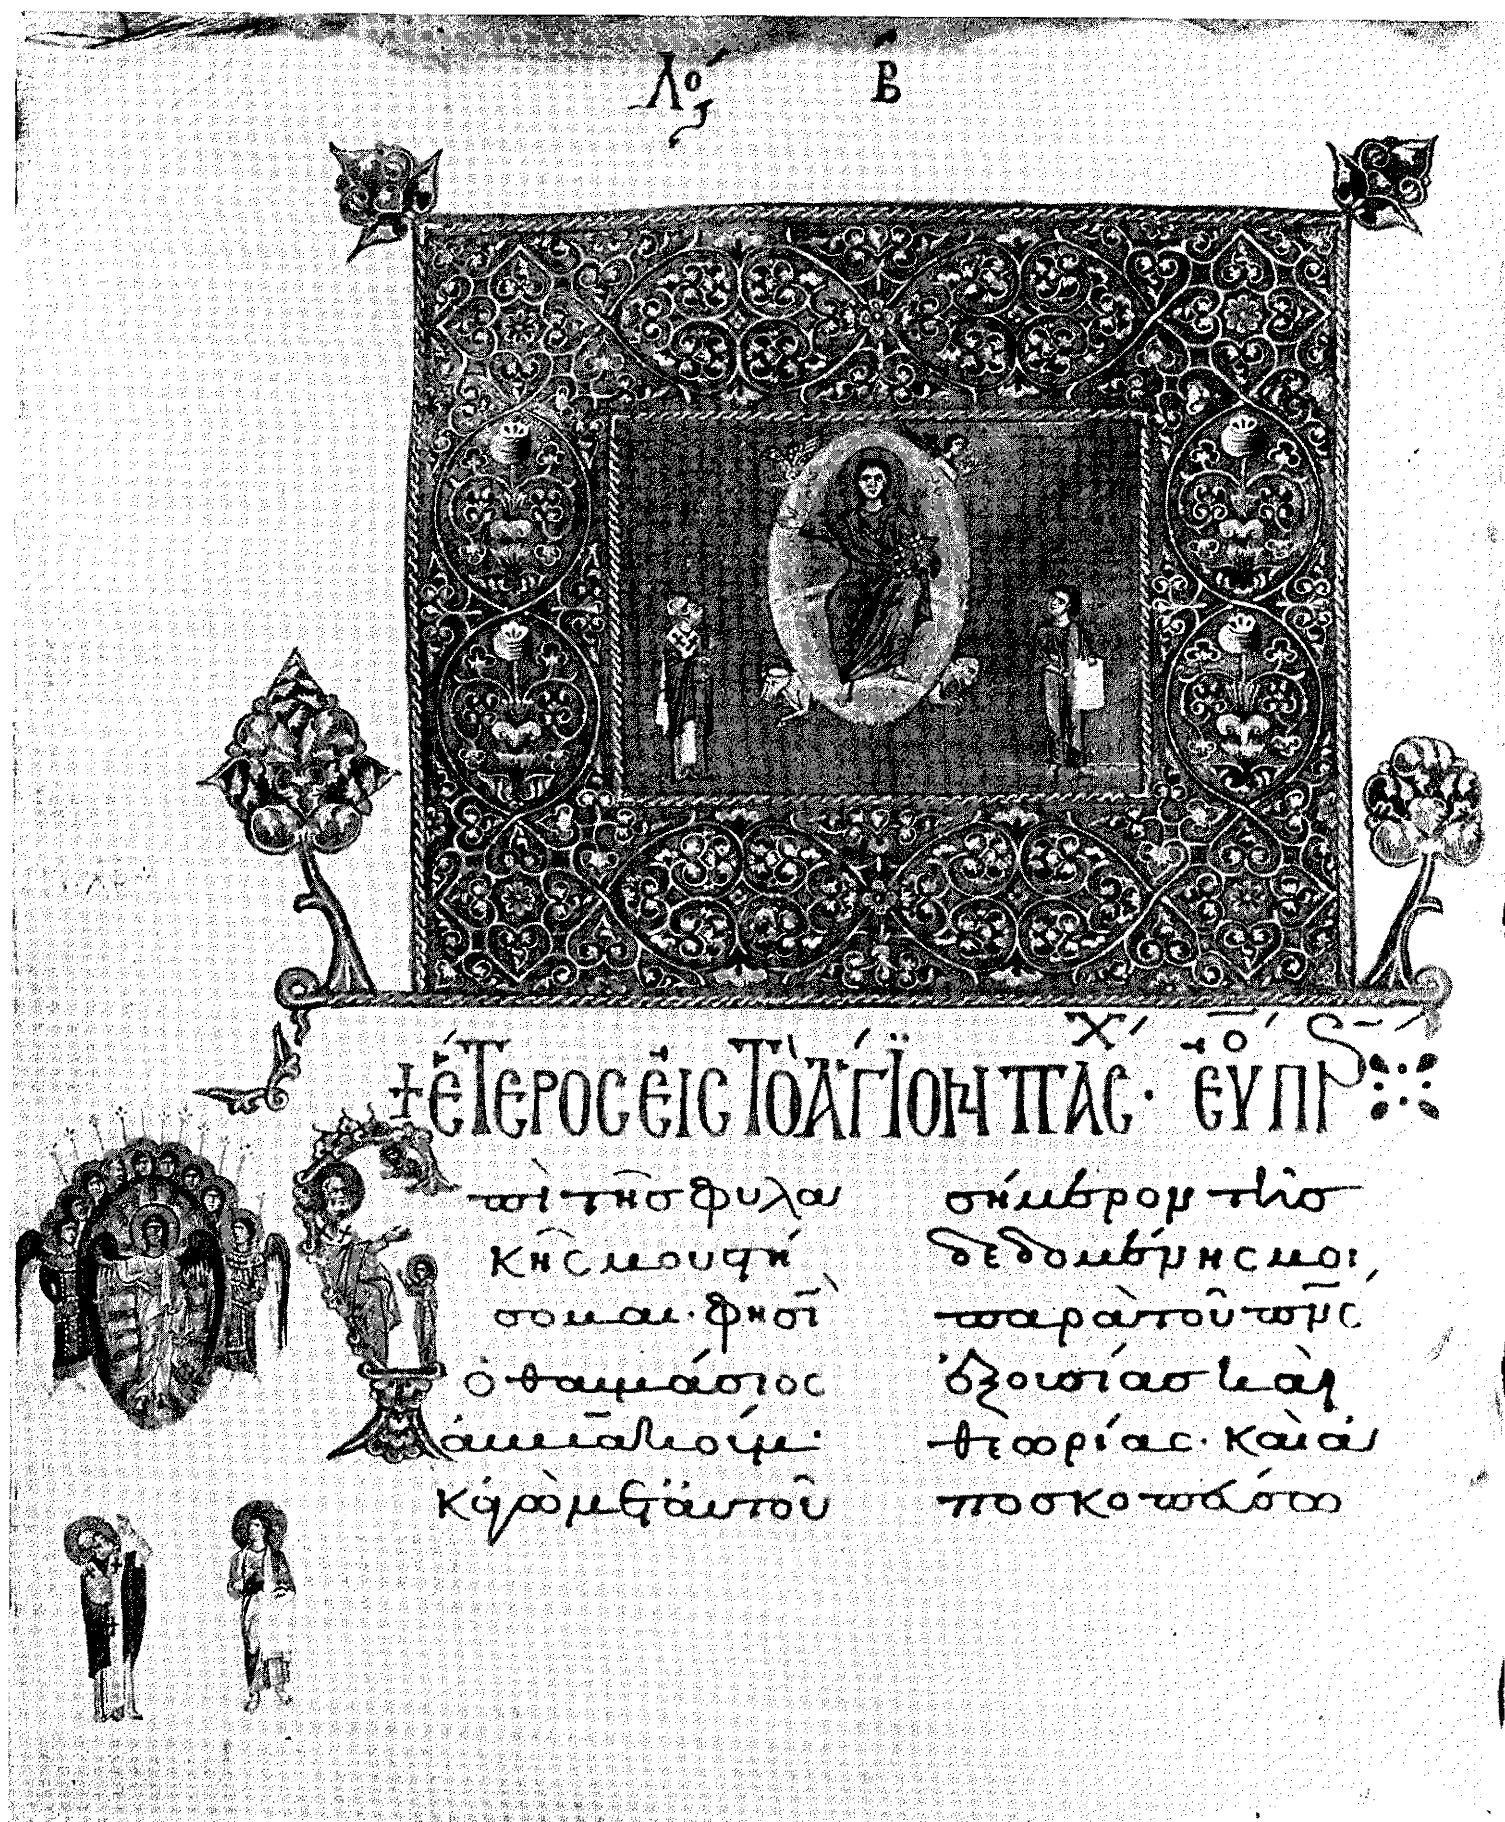 Λό Β
+ ἕτερος εἰς τὸ ἅγιον πάσχ· εὐο πρ
πὶ τῆς φυλα
κῆς μου στή
σομαι· φησὶν
ὁ θαυμάσιος
ἀμβακούμ·
κἀγὼ μετ αὐτοῦ
σήμερον τῆς
δεδομένης μοι
παρὰ τοῦ πνς
ἐξουσίας καὶ
θεωρίας· καὶ ἀ
ποσκοπεύσω